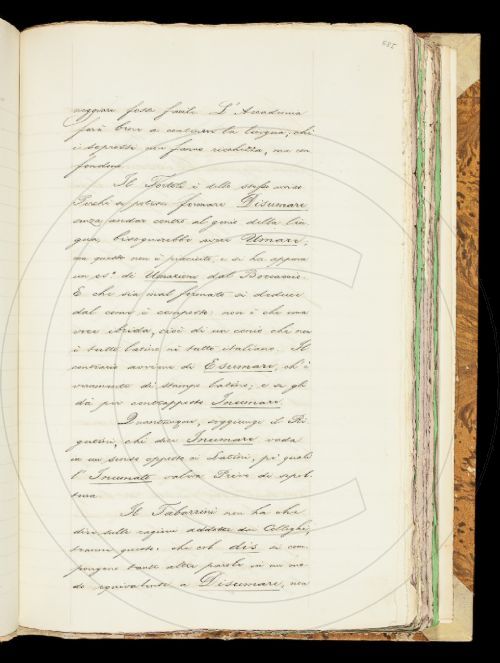 685
neggiare fosse facile. L'Accademia
farà bene a centinare la lingua, chè
i soprassi non fanno ricchezza, ma con
fondono.
Il Tortoli è dello stesso avviso.
Perchè si potesse formare Disumare
senza andar contro al genio della lin
gua, bisognerebbe avere Umare;
ma questo non è piaciuto, e si ha appena
un es.o di Umazione dal Boccaccio.
E che sia mal formato si deduce
dal come è composto: non è che una
voce ibrida, cioè di un conio che non
è tutto latino nè tutto italiano. Il
contrario avviene di Esumare, ch'è
veramente di stampo latino; e a gli
dà per contrapposto Inumare.
Quantunque, soggiunge il Ri
gutini, chi dice Inumare vada
in un senso opposto ai Latini, pei quali
l'Inumato valeva Privo di sepol
tura.
Il Tabarrini non ha che
dire sulle ragioni addotte dai Colleghi,
tranne questo: che col dis si com
pongono tante altre parole in un mo
do equivalente a Disumare, non